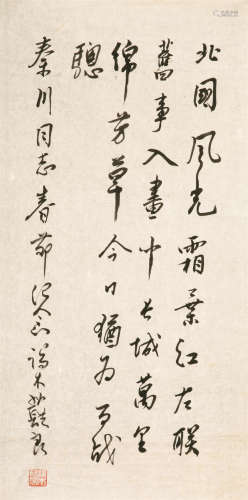 北國風光霜葉紅左聯
舊事入畫中長城萬里
綿芳草今日猶為百戰
聰
秦川同志春節 端木蕻良